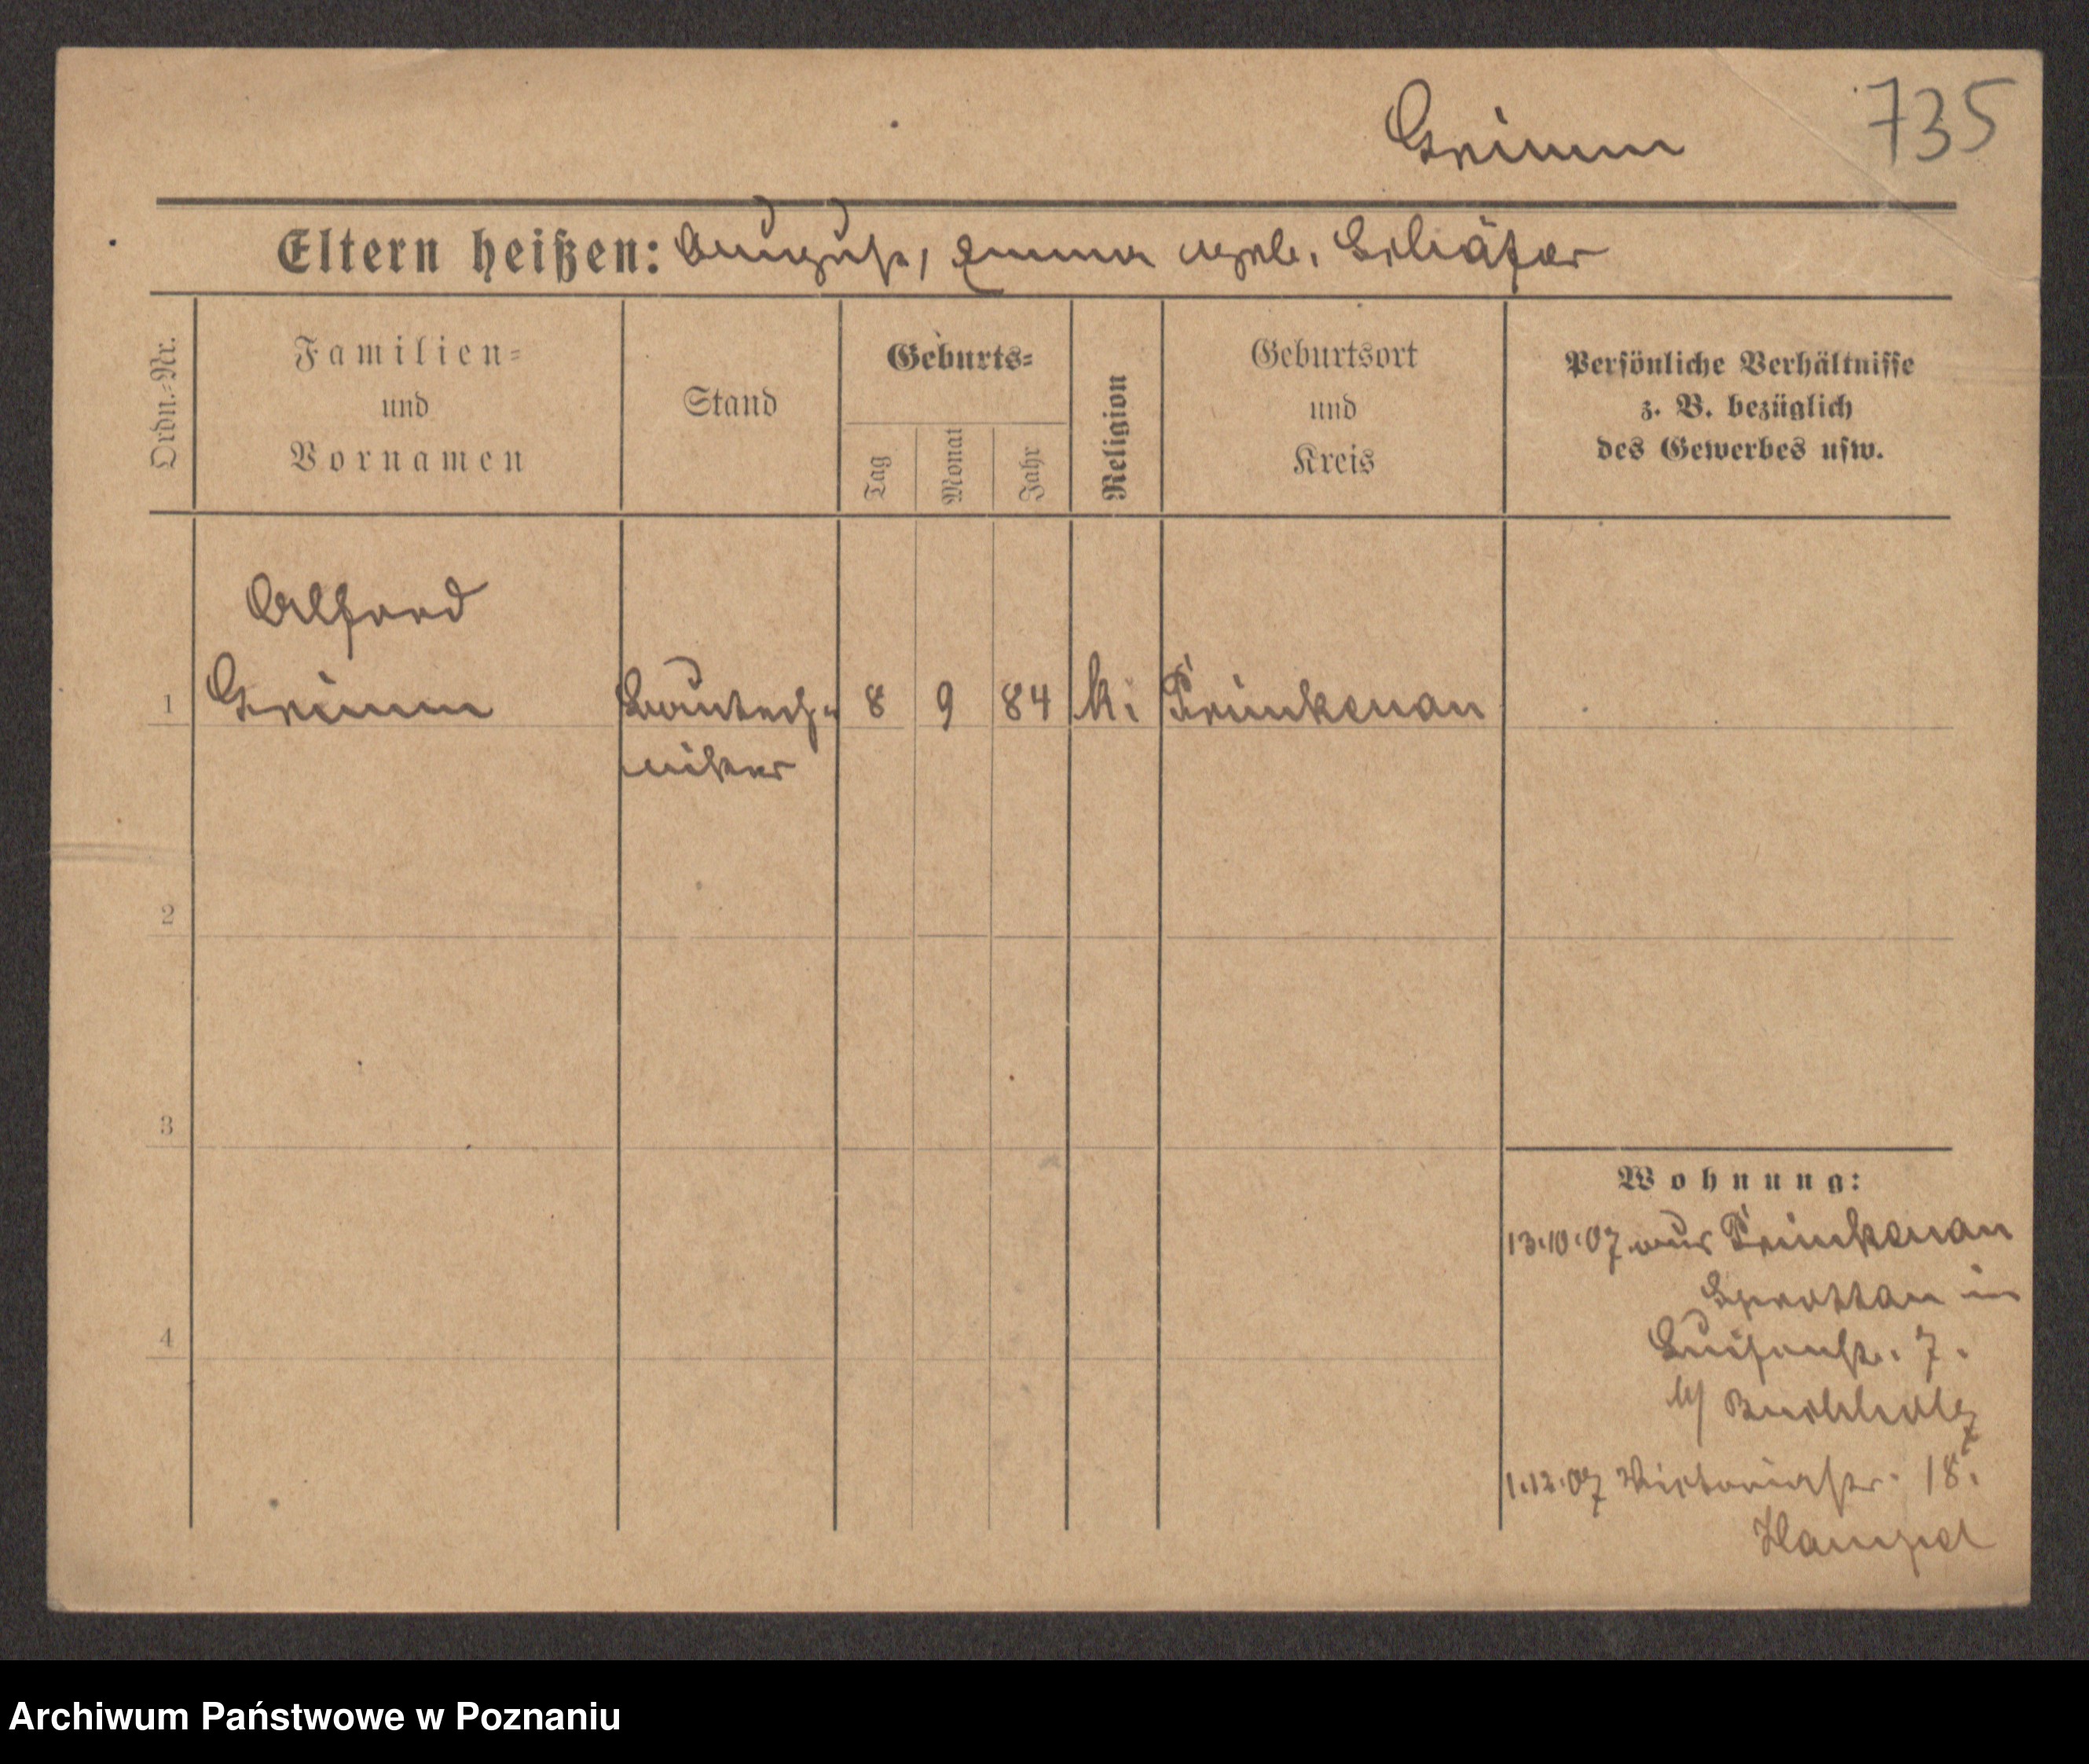 Grimm
735
Eltern heißen: August, Emma geb. Schäfer
Ordn.-Nr.
Familien-
und
Vornamen
Stand
Geburts-
Tag
Monat
Jahr
Religion
Geburtsort
und
Kreis
Persönliche Verhältnisse
z. B. bezüglich
des Gewerbes usw.
Alfred
1 Grimm Bautech- 8 9 84 k. Primkenau
niker
2
3
4
Wohnung:
13.10.07 aus Primkenau
Sprottau in
Luisenstr. 7.
b/ Buchholz
1.12.07 Victoriastr. 18.
Hampel
Archiwum Państwowe w Poznaniu